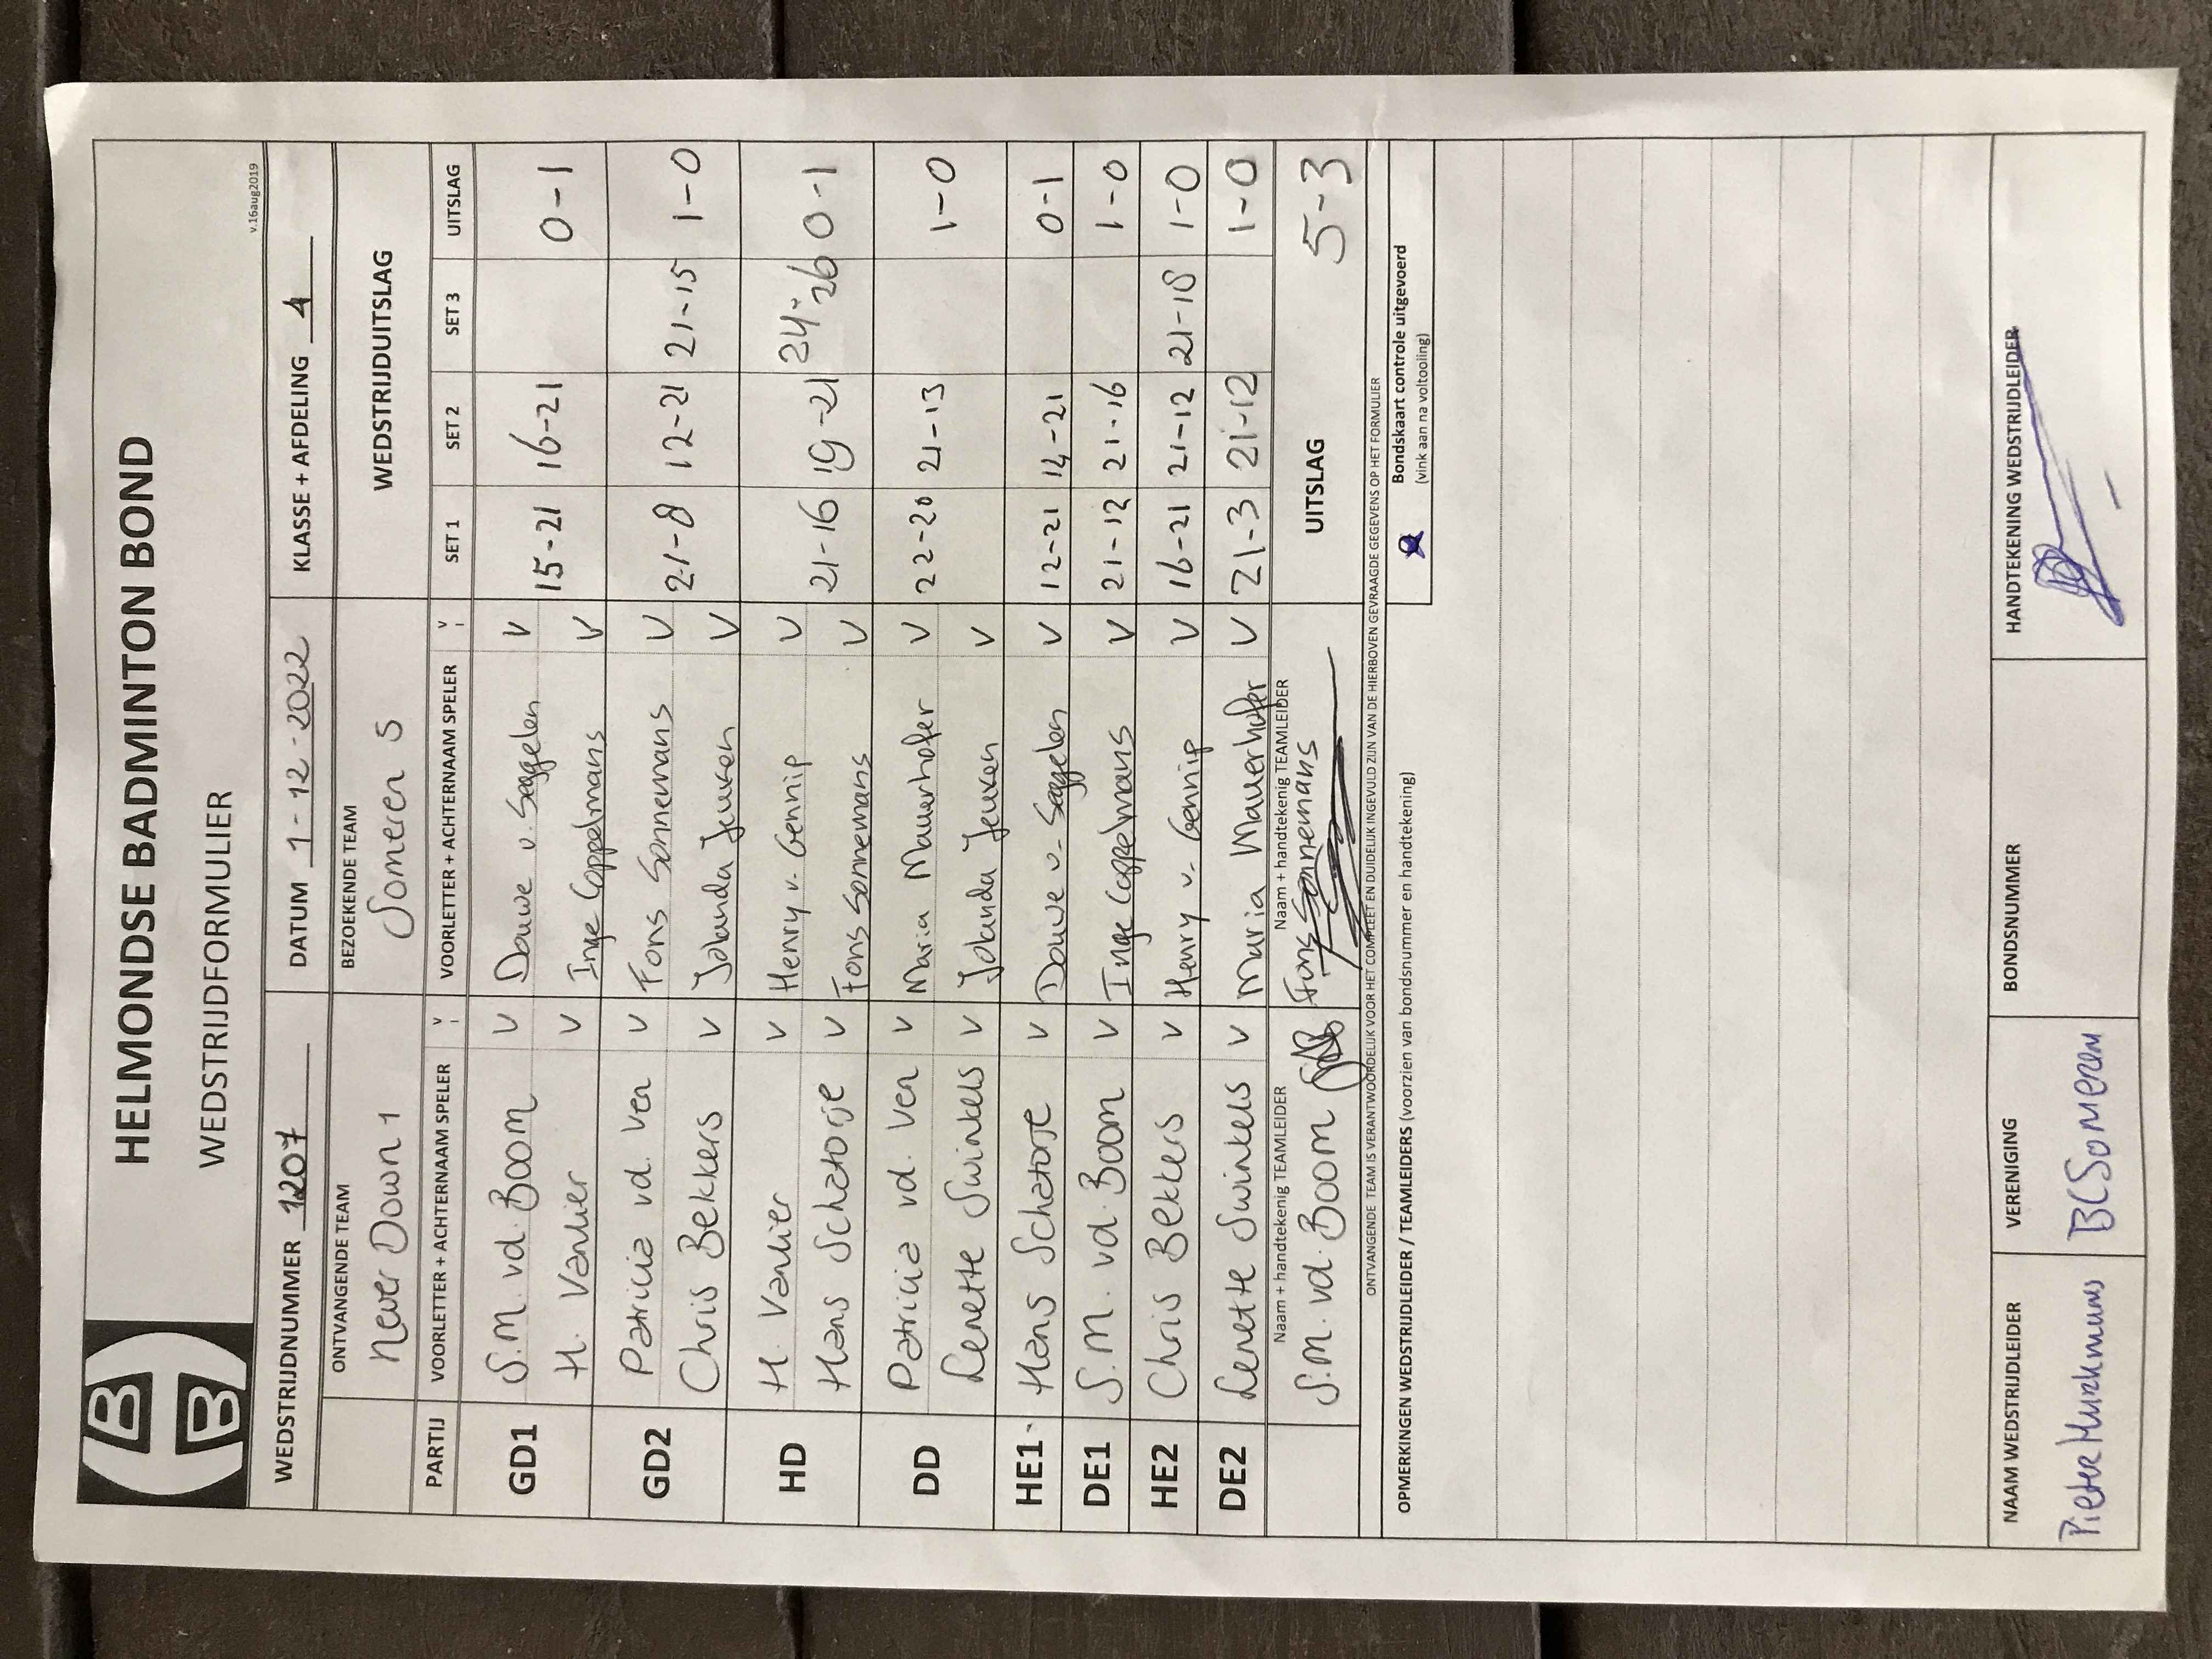 HELMONDSE BADMINTON BOND
WEDSTRIJDFORMULIER
v.16aug2019
WEDSTRIJDNUMMER 1207 DATUM 1-12-2022 KLASSE + AFDELING 4
ONTVANGENDE TEAM BEZOEKENDE TEAM WEDSTRIJDUITSLAG
Never Down 1 Someren 5
PARTIJ VOORLETTER + ACHTERNAAM SPELER V VOORLETTER + ACHTERNAAM SPELER V SET 1 SET 2 SET 3 UITSLAG
GD1 S.M. vd. Boom V Douwe v. Seggelen V 15-21 16-21 0-1
H. Vanlier V Inge Coppelmans V
GD2 Patricia vd. Ven V Fons Sonnemans V 21-8 12-21 21-15 1-0
Chris Bekkers V Jolanda Jeuken V
HD H. Vanlier V Henry v. Gennip V 21-16 19-21 24-26 0-1
Hans Schatorje V Fons Sonnemans V
DD Patricia vd. Ven V Maria Mauerhofer V 22-20 21-13 1-0
Lenette Swinkels V Jolanda Jeuken V
HE1 Hans Schatorje V Douwe v. Seggelen V 12-21 14-21 0-1
DE1 S.M. vd. Boom V Inge Coppelmans V 21-12 21-16 1-0
HE2 Chris Bekkers V Henry v. Gennip V 16-21 21-12 21-18 1-0
DE2 Lenette Swinkels V Maria Mauerhofer V 21-3 21-12 1-0
Naam + handtekenig TEAMLEIDER Naam + handtekenig TEAMLEIDER UITSLAG 5-3
S.M. vd. Boom Fons Sonnemans
ONTVANGENDE TEAM IS VERANTWOORDELIJK VOOR HET COMPLEET EN DUIDELIJK INGEVULD ZIJN VAN DE HIERBOVEN GEVRAAGDE GEGEVENS OP HET FORMULIER
OPMERKINGEN WEDSTRIJDLEIDER / TEAMLEIDERS (voorzien van bondsnummer en handtekening)
Bondskaart controle uitgevoerd
(vink aan na voltooiing)
NAAM WEDSTRIJDLEIDER VERENIGING BONDSNUMMER HANDTEKENING WEDSTRIJDLEIDER
Pieter BC Someren